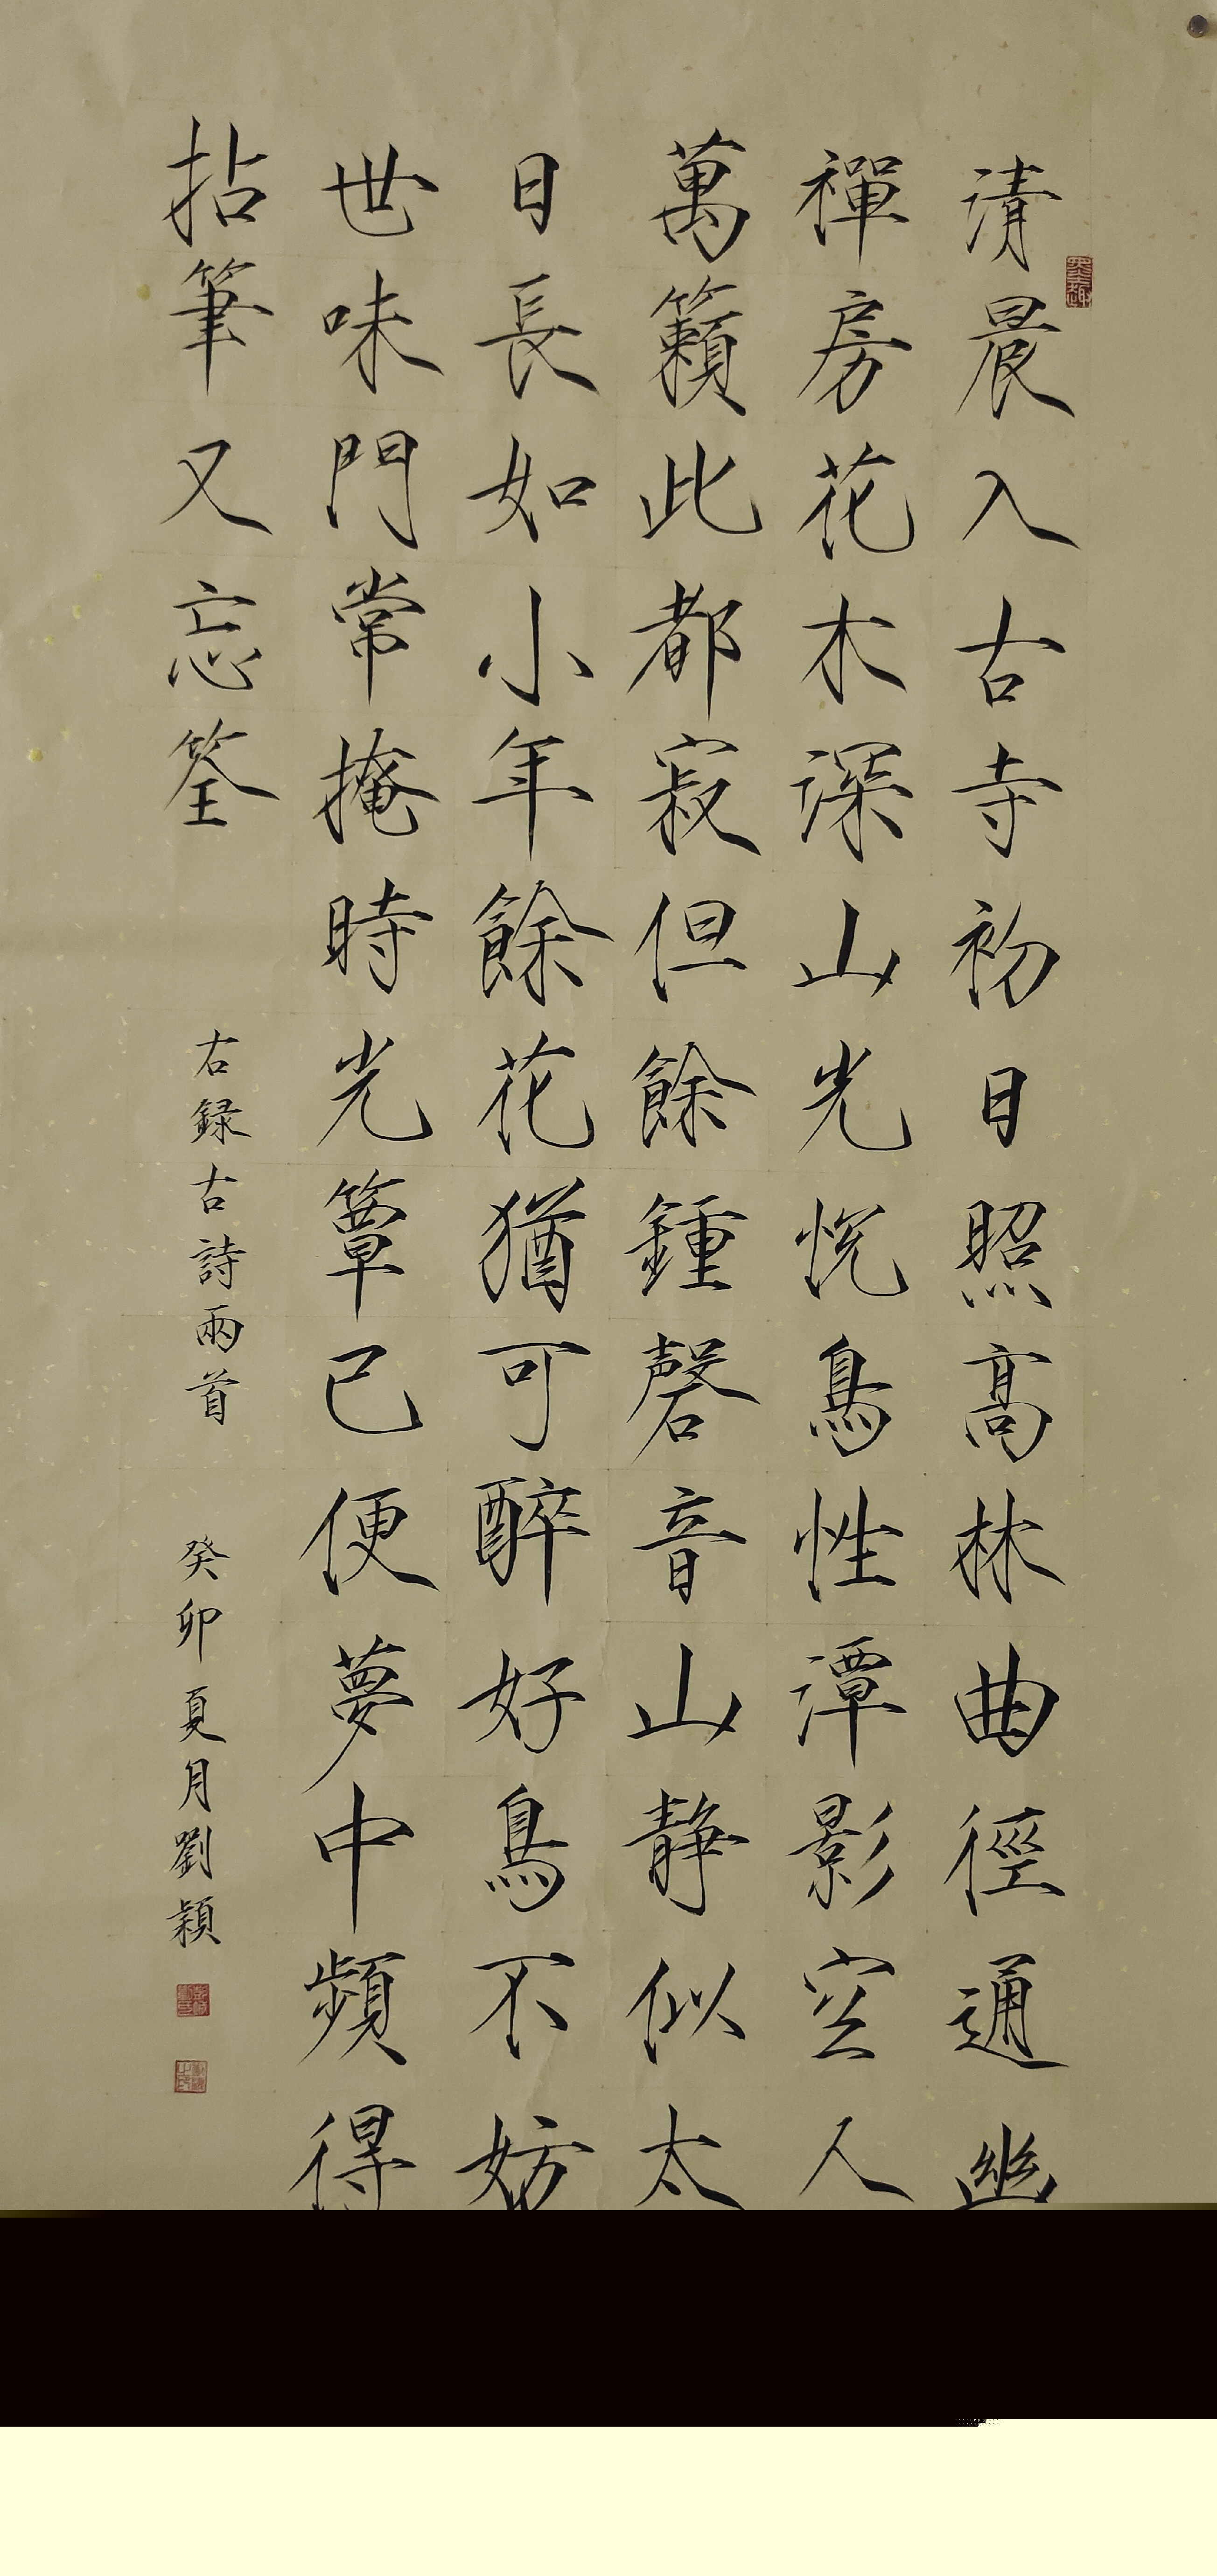 清晨入古寺初日照高林曲徑通幽
禪房花木深山光悅鳥性潭影空人
萬籟此都寂但餘鍾磬音山静似太
日長如小年餘花猶可醉好鳥不妨
世味門常掩時光簟已便夢中頻得
拈筆又忘筌
右録古詩兩首
癸卯夏月劉穎